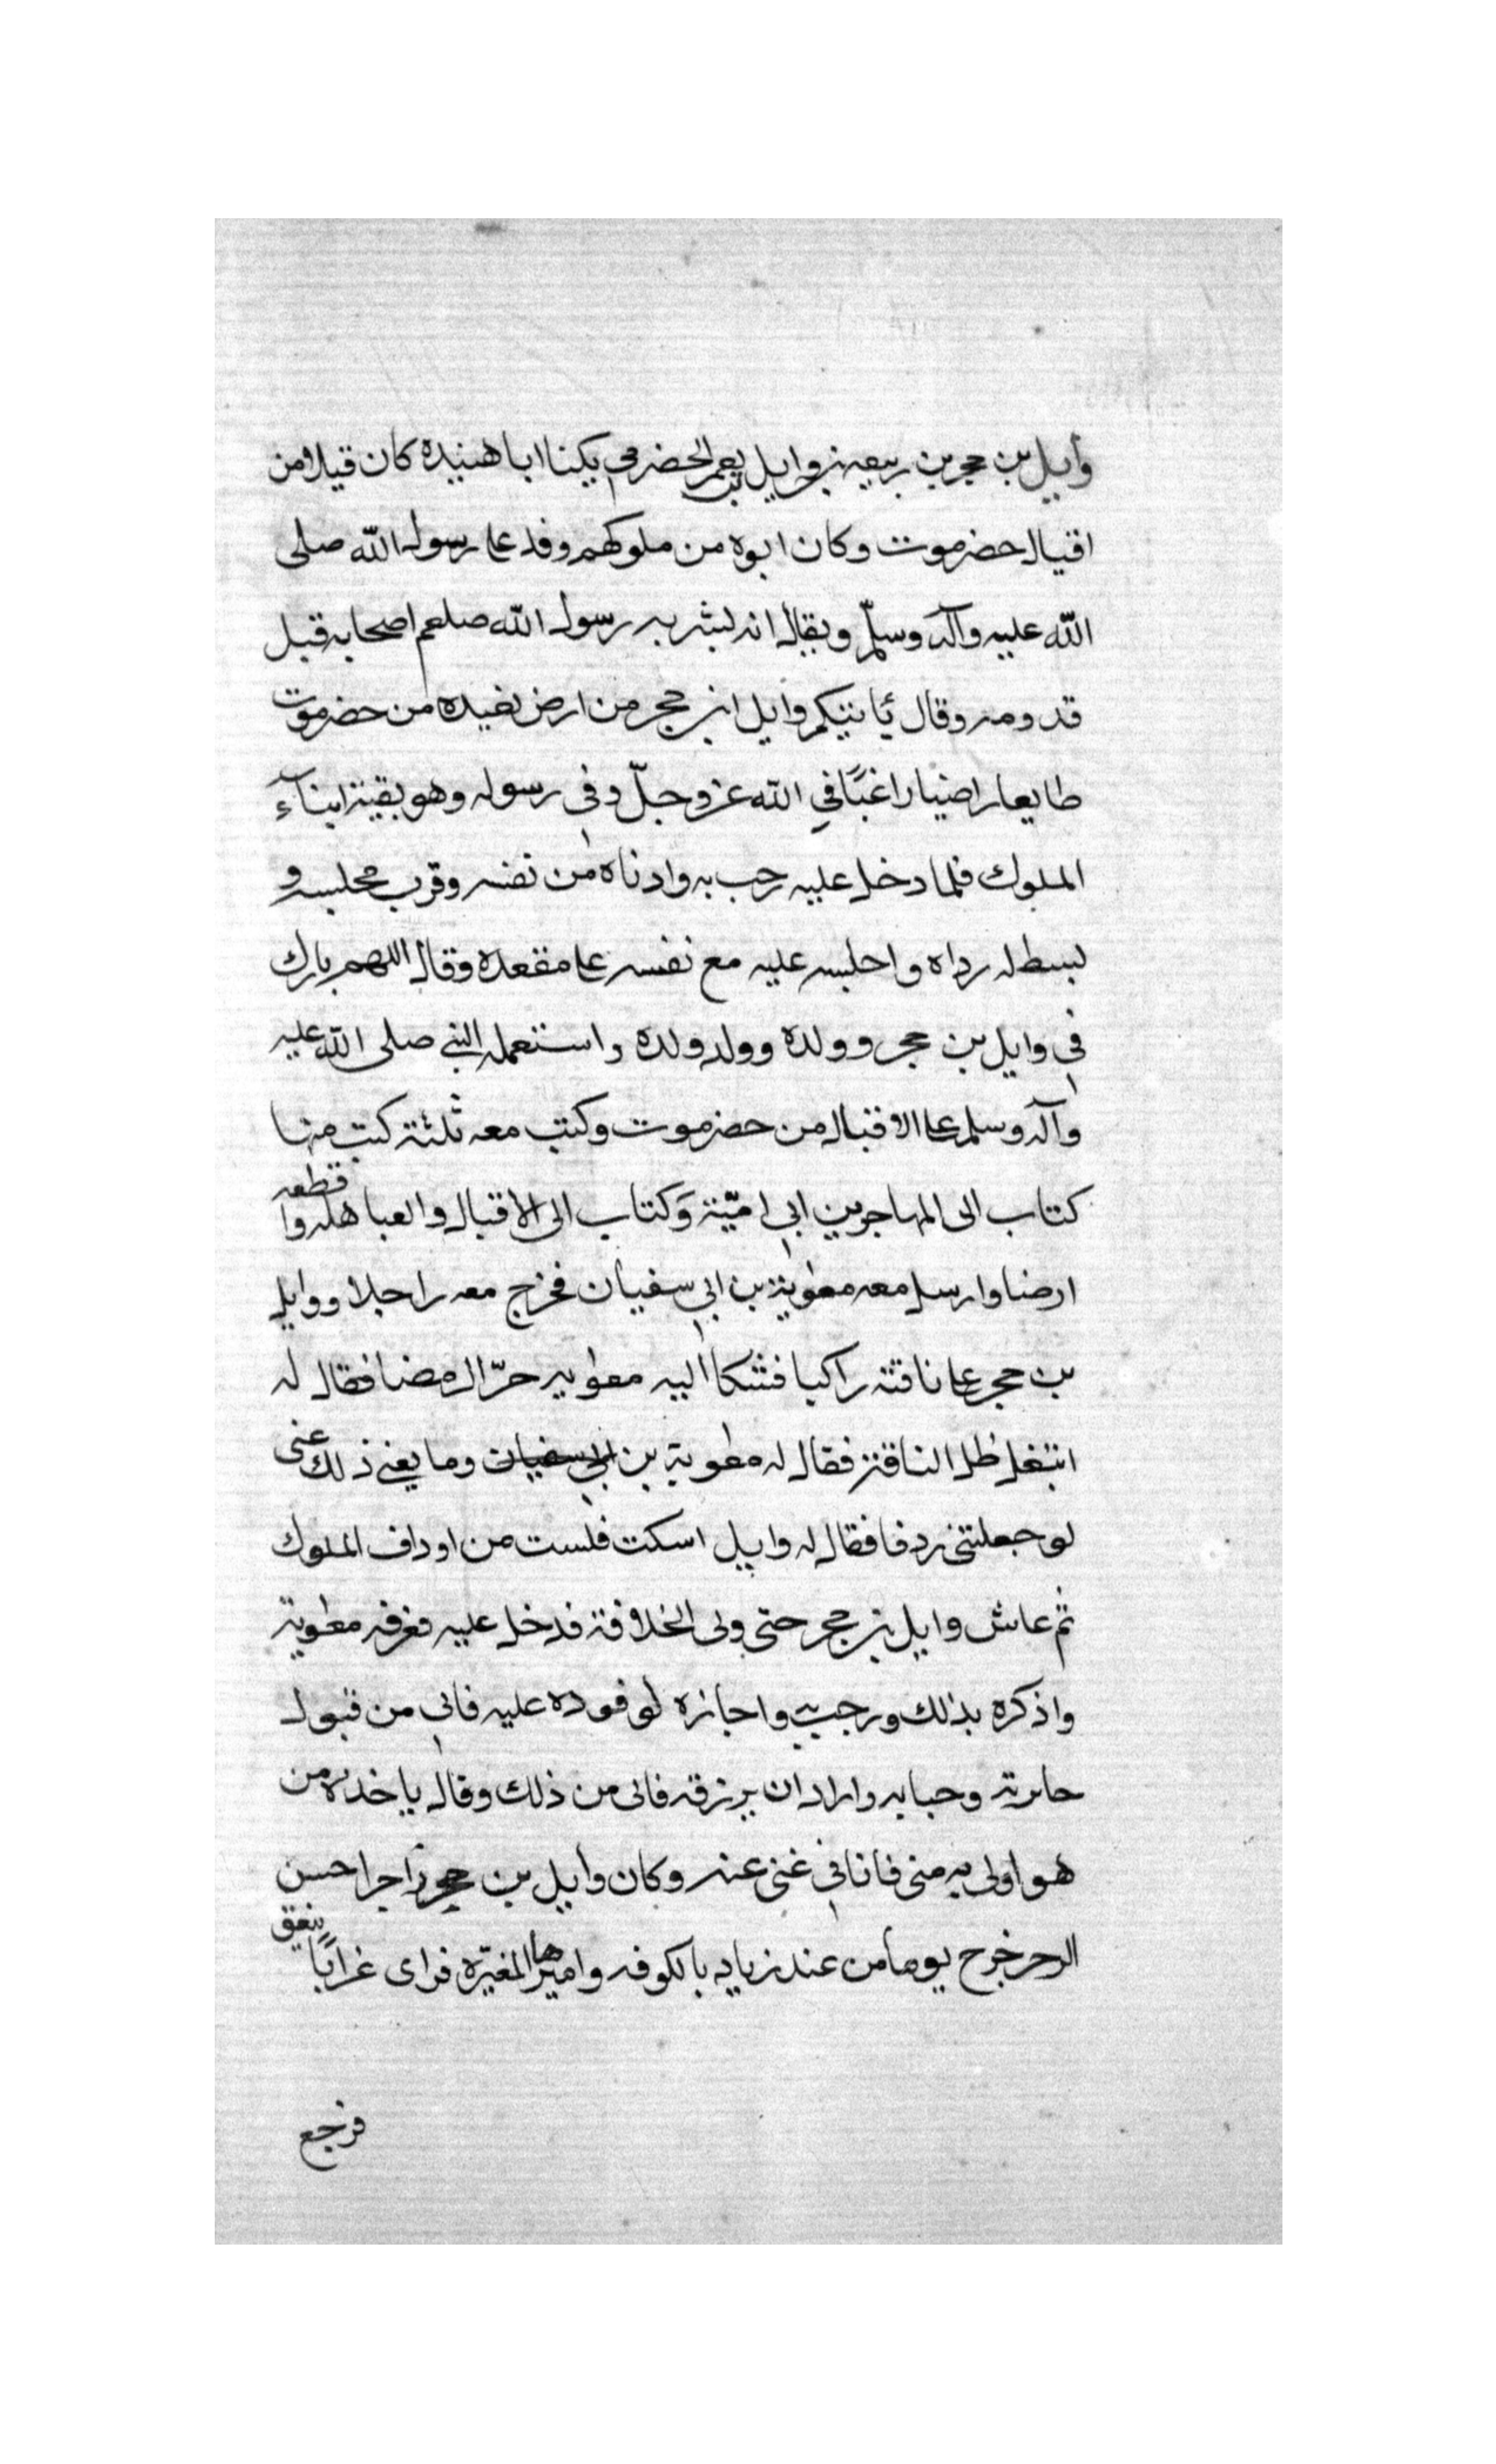 وايل بن حجر بن ربيعه بن وايل بن يعمر الحضرمي يكنا ابا هنيده كان قيلا من
اقيال حضرموت وكان ابوه من ملوكهم وفد على رسول الله صلى
الله عليه وآله وسلّم ويقال انه لبشر به رسول الله صلعم اصحابه قبل
قدومه وقال ياتيكم وايل ابن حجر من ارض بعيده من حضرموت
طايعا راضيا راغبًا في الله عز وجلّ وفى رسوله وهو بقية ابنآء
الملوك فلما دخل عليه رحب به وادناه من نفسه وقرب مجلسه و
بسط له رداه واجلسه عليه مع نفسه على مقعده وقال اللهم بارك
فى وايل بن حجر وولده وولد ولده واستعمله النبي صلى الله عليه
وآله وسلم على الاقيال من حضرموت وكتب معه ثلثة كتب منها
كتاب الى المهاجر بن ابي اميّة وَكتاب الى الاقيال والعباهله وا قطعه
ارضا وارسل معه معوية بن ابي سفيان فخرج معه راجلا ووايل
بن حجر على ناقته راكبا فشكا اليه معويه حرّ الرمضا فقال له
انتعل ظل الناقة فقال له معوية بن ابي سفيان وما يغني ذلك عنى
لو جعلتنى ردفا فقال له وايل اسكت فلست من ارداف الملوك
ثم عاش وايل بن حجر حتى ولى الخلافة فدخل عليه فعرفه معوية
واذكره بذلك ورحب به واجازه لوفوده عليه فابى من قبول
جايزته وحبايه واراد ان يرزقه فابى من ذلك وقال ياخذه من
هو اولى به منى فانا في غنى عنه وكان وايل بن حجر زاجرا حسن
الزجر خرج يوما من عند زياد بالكوفه واميرها المغيّره فراى غرابًا ينعق
فرجع